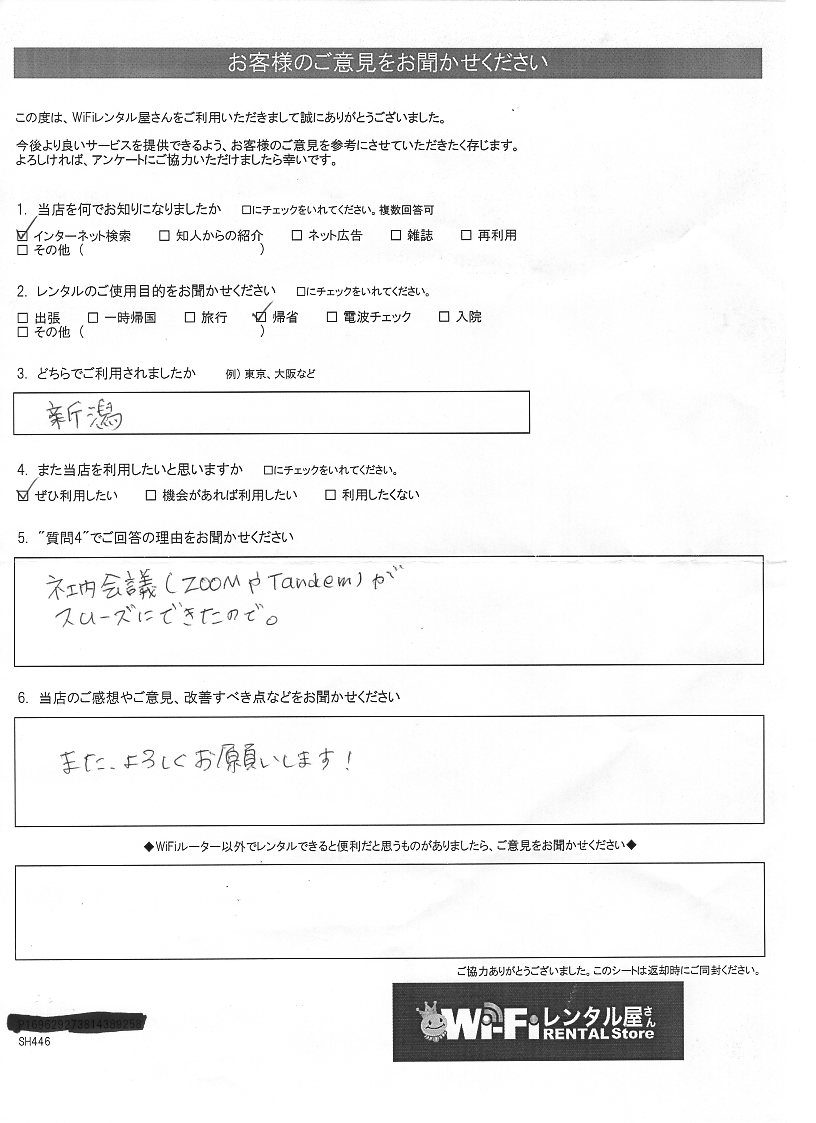 お客様のご意見をお聞かせください
この度は、WiFiレンタル屋さんをご利用いただきまして誠にありがとうございました。
今後より良いサービスを提供できるよう、お客様のご意見を参考にさせていただきたく存じます。
よろしければ、アンケートにご協力いただけましたら幸いです。
1. 当店を何でお知りになりましたか □にチェックをいれてください。複数回答可
☑ インターネット検索 □ 知人からの紹介 □ ネット広告 □ 雑誌 □ 再利用
□ その他 ( )
2. レンタルのご使用目的をお聞かせください □にチェックをいれてください。
□ 出張 □ 一時帰国 □ 旅行 ☑ 帰省 □ 電波チェック □ 入院
□ その他 ( )
3. どちらでご利用されましたか 例) 東京、大阪など
新潟
4. また当店を利用したいと思いますか □にチェックをいれてください。
☑ ぜひ利用したい □ 機会があれば利用したい □ 利用したくない
5. "質問4"でご回答の理由をお聞かせください
社内会議(ZOOMやTandem)が
スムーズにできたので。
6. 当店のご感想やご意見、改善すべき点などをお聞かせください
また、よろしくお願いします!
◆WiFiルーター以外でレンタルできると便利だと思うものがありましたら、ご意見をお聞かせください◆
ご協力ありがとうございました。このシートは返却時にご同封ください。
Wi-Fiレンタル屋さん
RENTAL Store
SH446